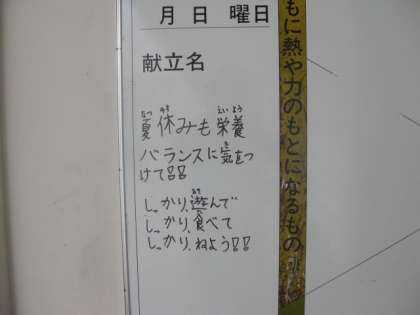 月 日 曜日
献立名
夏休みも栄養
バランスに気をつ
けて!!
しっかり遊んで
しっかり食べて
しっかりねよう!!
もに熱や力のもとになるもの